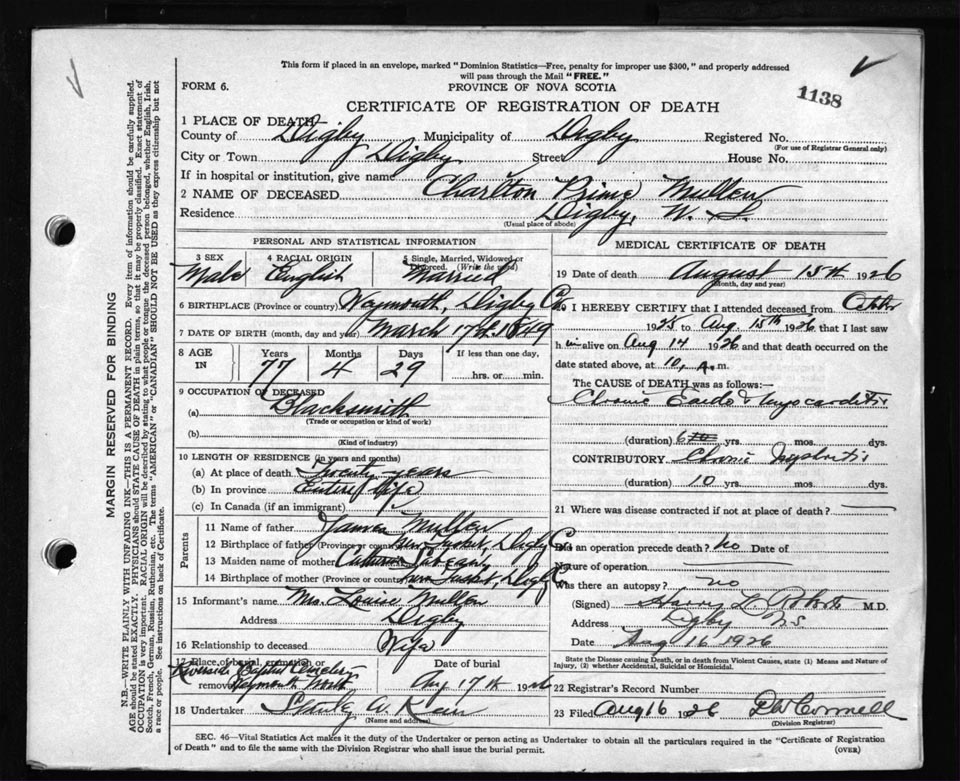 This form if placed in an envelope, marked "Dominion Statistics—Free, penalty for improper use $300," and properly addressed
will pass through the Mail "FREE."
FORM 6.
PROVINCE OF NOVA SCOTIA
1138
CERTIFICATE OF REGISTRATION OF DEATH
1 PLACE OF DEATH
County of Digby Municipality of Digby Registered No.
(For use of Registrar General only)
City or Town Digby Street House No.
If in hospital or institution, give name
2 NAME OF DECEASED Charlton Prime Mullen
Residence Digby, N. S.
(Usual place of abode)
PERSONAL AND STATISTICAL INFORMATION
3 SEX 4 RACIAL ORIGIN 5 Single, Married, Widowed or Divorced. (Write the word)
Male English Married
6 BIRTHPLACE (Province or country) Weymouth, Digby Co.
7 DATE OF BIRTH (month, day and year) March 17th 1849
8 AGE IN Years Months Days If less than one day,
77 4 29 hrs. or min.
9 OCCUPATION OF DECEASED
(a) Blacksmith
(Trade or occupation or kind of work)
(b)
(Kind of industry)
10 LENGTH OF RESIDENCE (in years and months)
(a) At place of death Twenty years
(b) In province Entire life
(c) In Canada (if an immigrant)
Parents
11 Name of father James Mullen
12 Birthplace of father (Province or country) New Tusket, Digby Co
13 Maiden name of mother
14 Birthplace of mother (Province or country) New Tusket, Digby Co
15 Informant's name Mrs. Louise Mullen
Address Digby
16 Relationship to deceased Wife
17 Place of burial, cremation or removal Date of burial
Riverside Weymouth North Aug 17th 1926
18 Undertaker Stanley W.
(Name and address)
MEDICAL CERTIFICATE OF DEATH
19 Date of death August 15th 1926
(Month, day and year)
20 I HEREBY CERTIFY that I attended deceased from
1925 to Aug 15th 1926, that I last saw
h im alive on Aug 14 1926 and that death occurred on the
date stated above, at 10, A.m.
The CAUSE of DEATH was as follows:—
Chronic Endo & Myocarditis
(duration) 6 yrs. mos. dys.
CONTRIBUTORY Chronic Nephritis
(duration) 10 yrs. mos. dys.
21 Where was disease contracted if not at place of death?
Did an operation precede death? no Date of
Nature of operation
Was there an autopsy? no
(Signed) Harry L. Roberts M.D.
Address Digby NS
Date Aug 16 1926
State the Disease causing Death, or in death from Violent Causes, state (1) Means and Nature of
Injury, (2) whether Accidental, Suicidal or Homicidal.
22 Registrar's Record Number
23 Filed Aug 16 1926
(Division Registrar)
SEC. 46—Vital Statistics Act makes it the duty of the Undertaker or person acting as Undertaker to obtain all the particulars required in the "Certificate of Registration
of Death" and to file the same with the Division Registrar who shall issue the burial permit. (OVER)
MARGIN RESERVED FOR BINDING
N.B.—WRITE PLAINLY WITH UNFADING INK—THIS IS A PERMANENT RECORD. Every item of information should be carefully supplied.
AGE should be stated EXACTLY. PHYSICIANS should STATE CAUSE OF DEATH in plain terms, so that it may be properly classified. Exact statement of
OCCUPATION is very important. RACIAL ORIGIN will be described by stating to what people or tongue the deceased person belonged, whether English, Irish,
Scotch, French, German, Russian, Ruthenian, etc. The terms "AMERICAN" or "CANADIAN" SHOULD NOT BE USED as they express citizenship but not
a race or people. See instructions on back of Certificate.